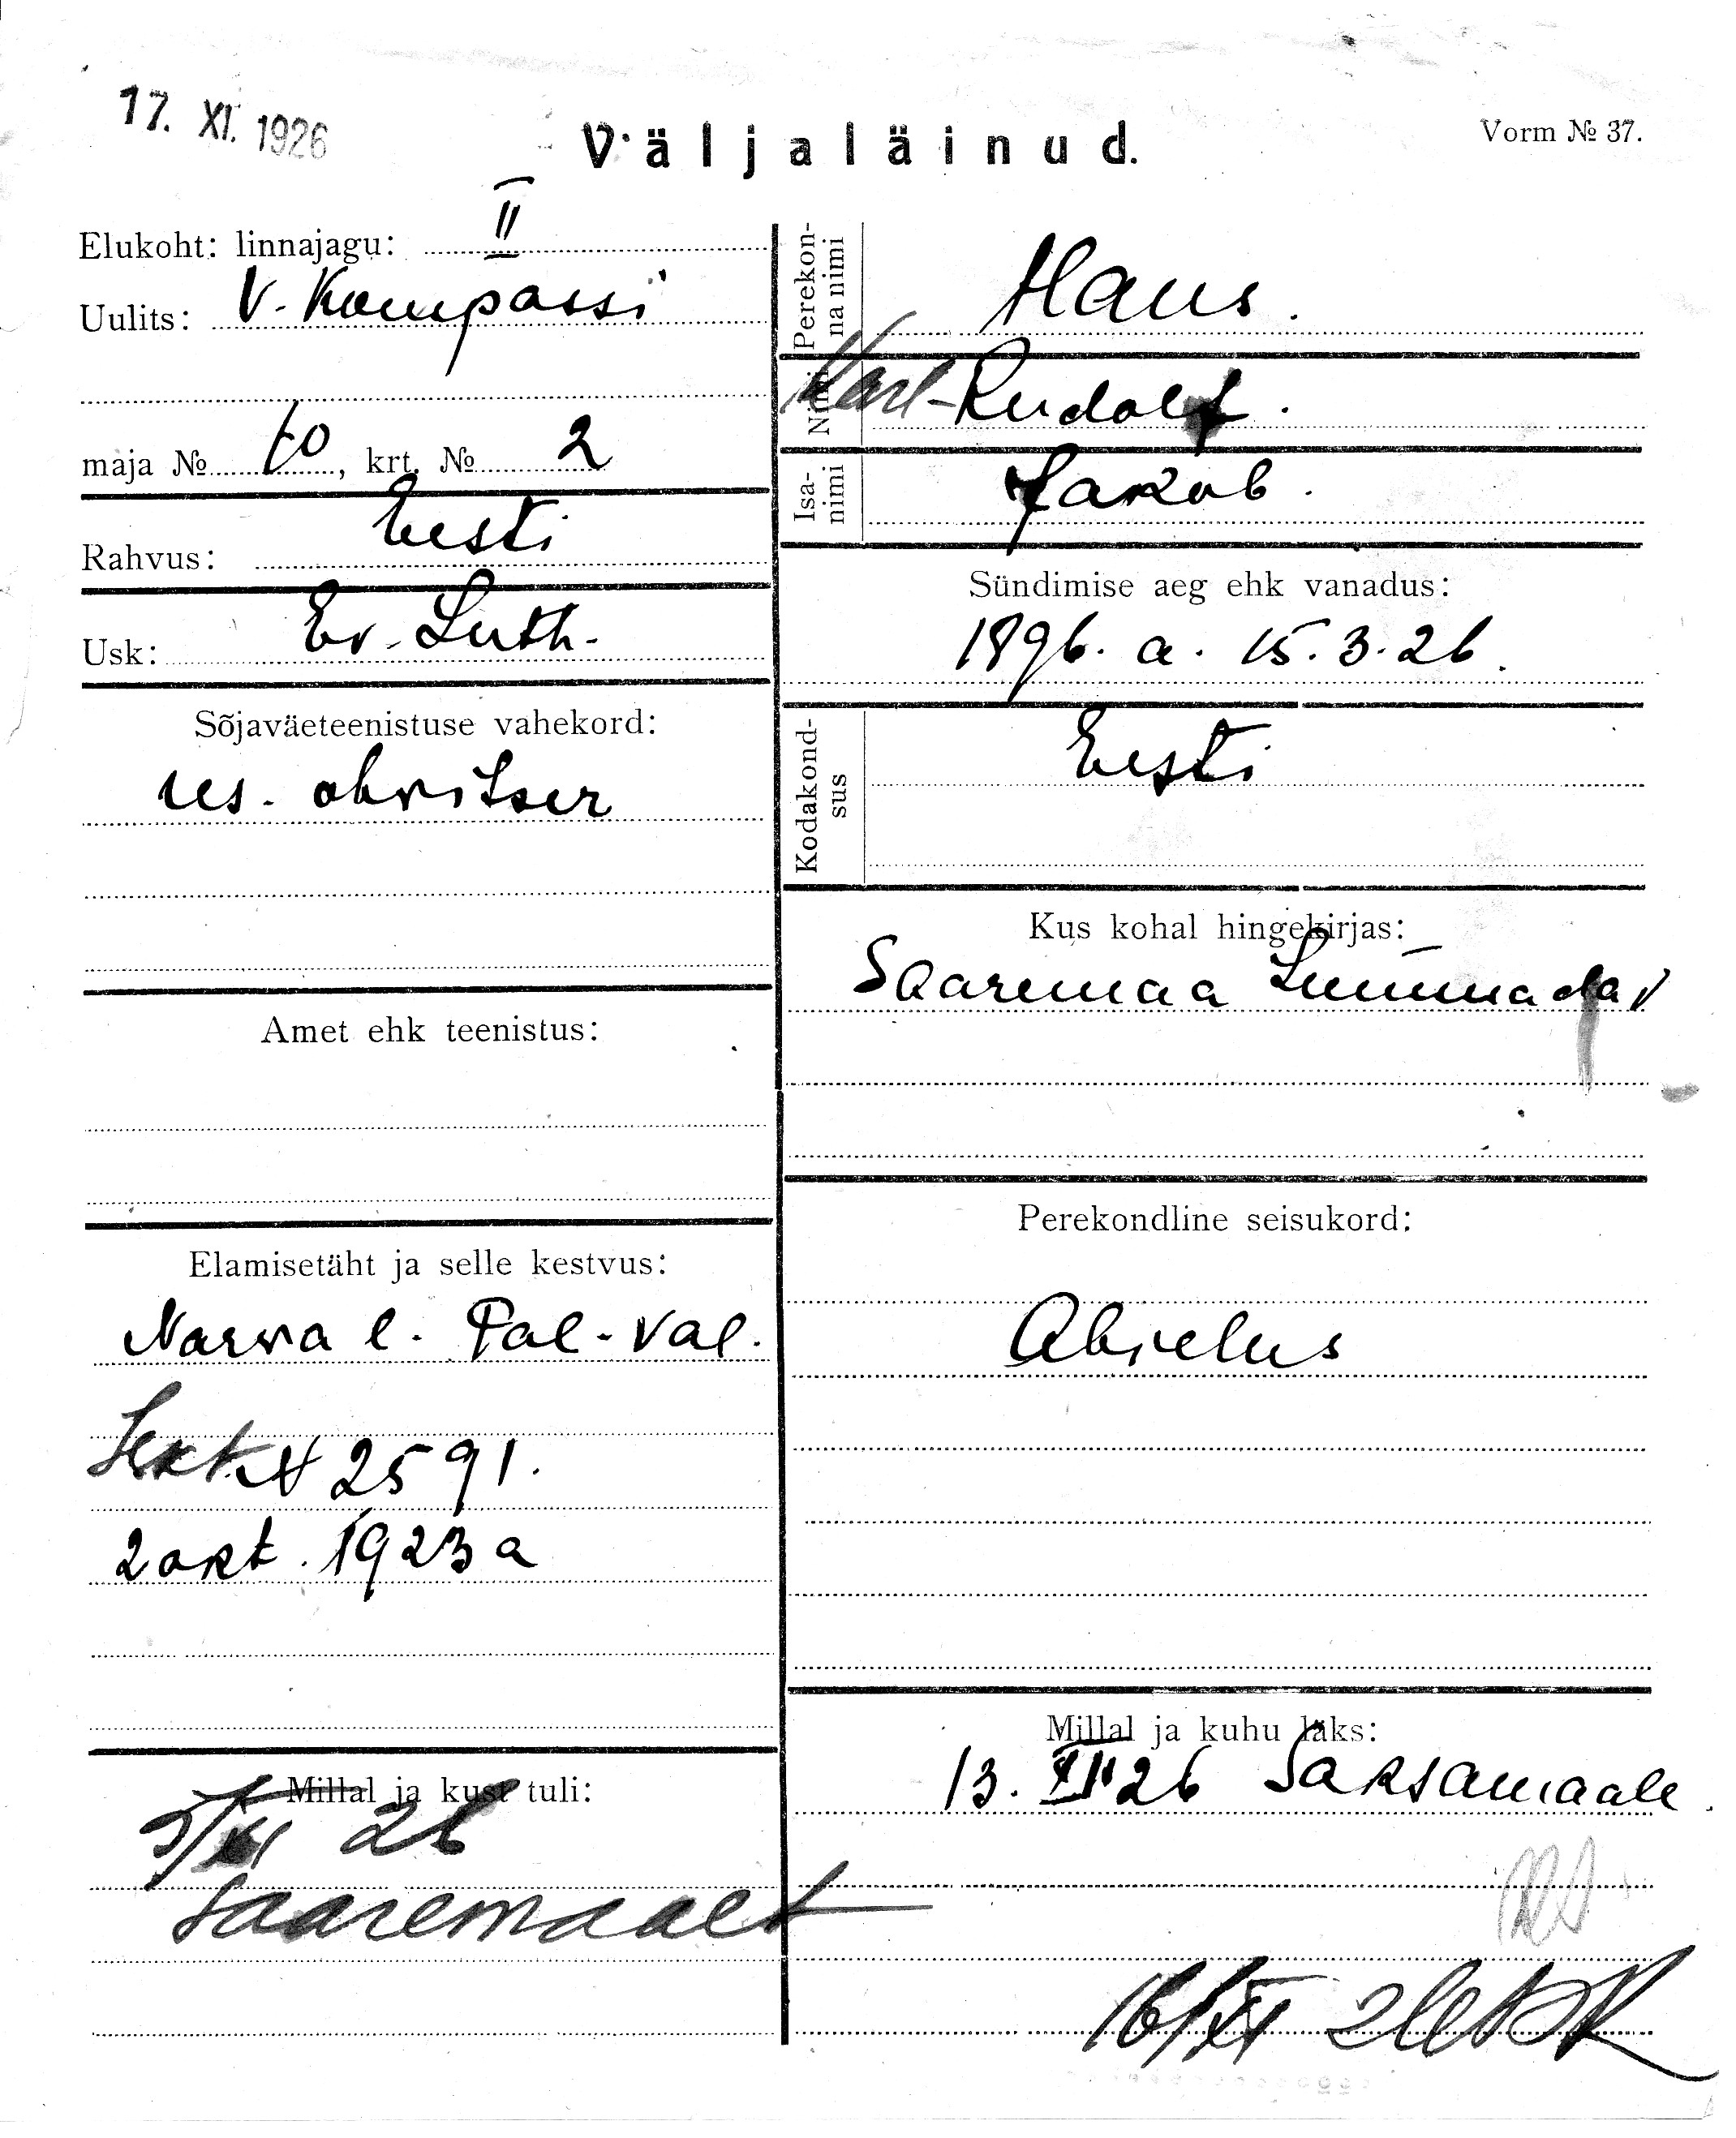 17. XI. 1926
Väljaläinud.
Vorm № 37.
Elukoht: linnajagu: II
Uulits: V. Kompassi
maja № 10, krt. № 2
Rahvus: Eesti
Usk: Ev. Luth.
Sõjaväeteenistuse vahekord:
res. ohvitser
Amet ehk teenistus:
Elamisetäht ja selle kestvus:
Narva l. Pol-val.
№ 2591.
2 okt. 1923 a
Millal ja kust tuli:
26
Saaremaalt
Perekonna nimi
Haus.
Nimi
Karl-Rudolf.
Isanimi
Jakob.
Sündimise aeg ehk vanadus:
1896. a. 15.3.26.
Kodakondsus
Eesti
Kus kohal hingekirjas:
Saaremaa Lümmada v
Perekondline seisukord:
Abielus
Millal ja kuhu läks:
13. XI 26 Saksamaale.
16/XI 26